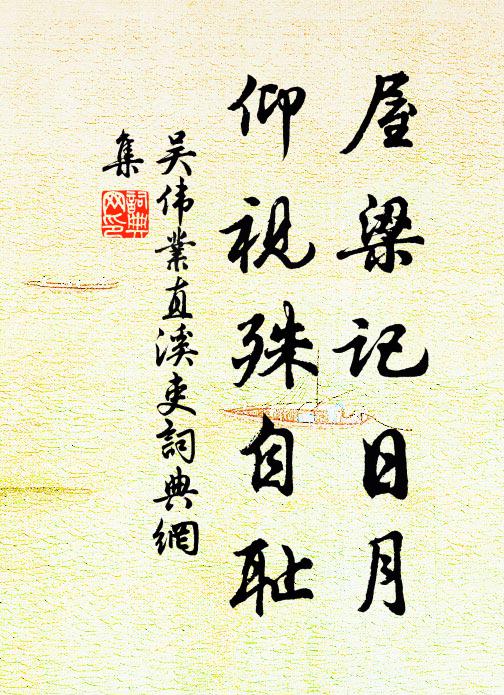 屋梁记日月
仰视殊自耻
吴伟業直溪吏詞典網
集
詞典
网印